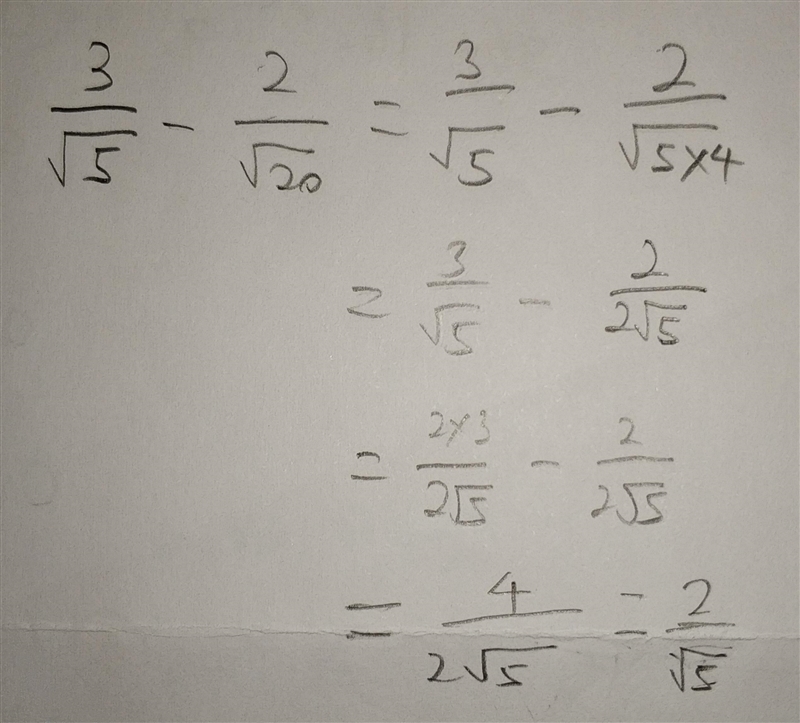 3/√5 - 2/√20 = 3/√5 - 2/√5×4
= 3/√5 - 2/2√5
= 2×3/2√5 - 2/2√5
= 4/2√5 = 2/√5